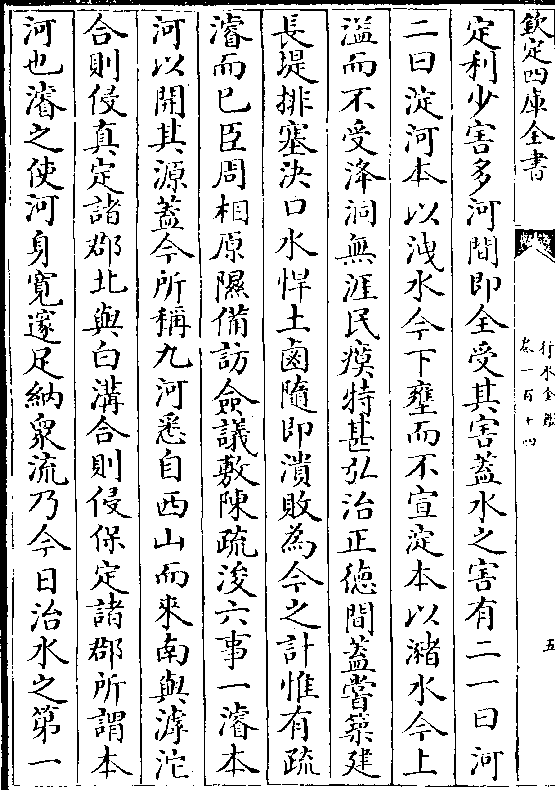 欽定四庫全書
行水金鑑
卷一百十四
五
定利少害多河間即全受其害蓋水之害有二一曰河
二曰淀河本以洩水今下壅而不宣淀本以瀦水今上
溢而不受洚洞無涯民瘼特甚弘治正德間蓋嘗築建
長堤排塞決口水悍土鹵隨即潰敗為今之計惟有疏
濬而已臣周相原隰備訪僉議敷陳疏浚六事一濬本
河以開其源蓋今所稱九河悉自西山而來南與滹沱
合則侵真定諸郡北與白溝合則侵保定諸郡所謂本
河也濬之使河身寬邃足納衆流乃今日治水之第一